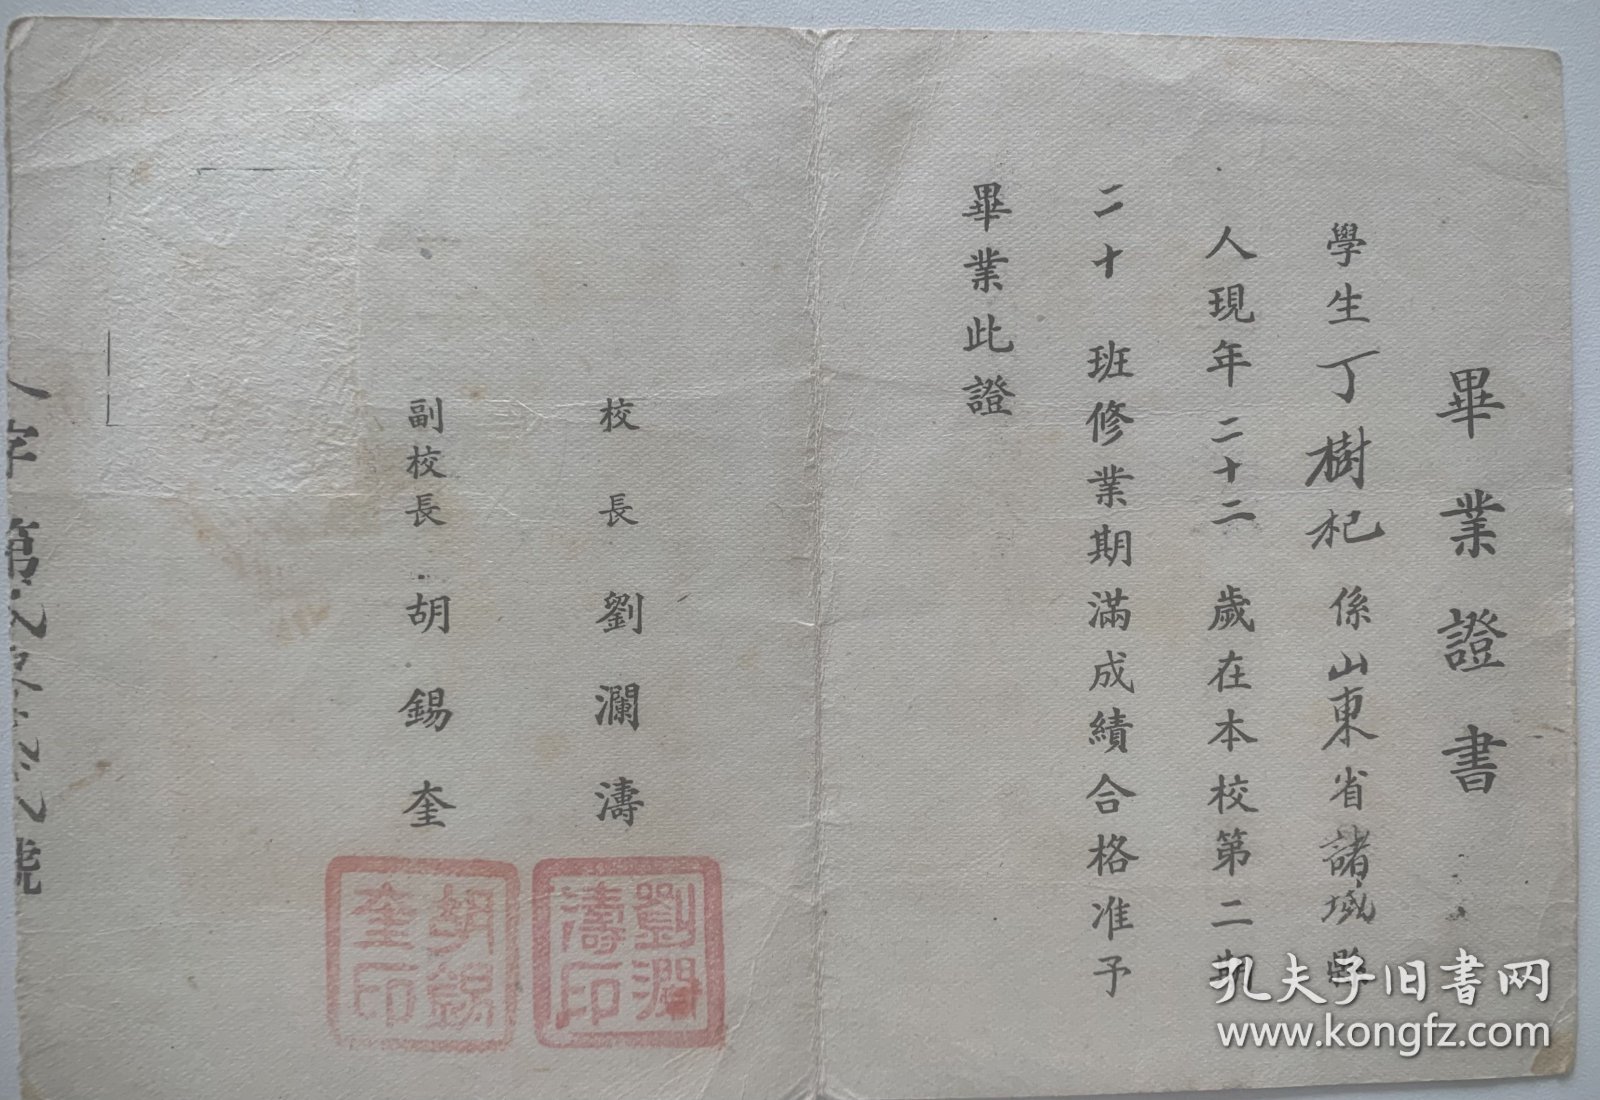 畢業證書
學生丁樹杞係山東省諸城縣
人現年二十二歲在本校第二期
二十班修業期滿成績合格准予
畢業此證
校長劉瀾濤
副校長胡錫奎
劉瀾濤印
胡錫奎印
字第號
孔夫子旧书网
www.kongfz.com